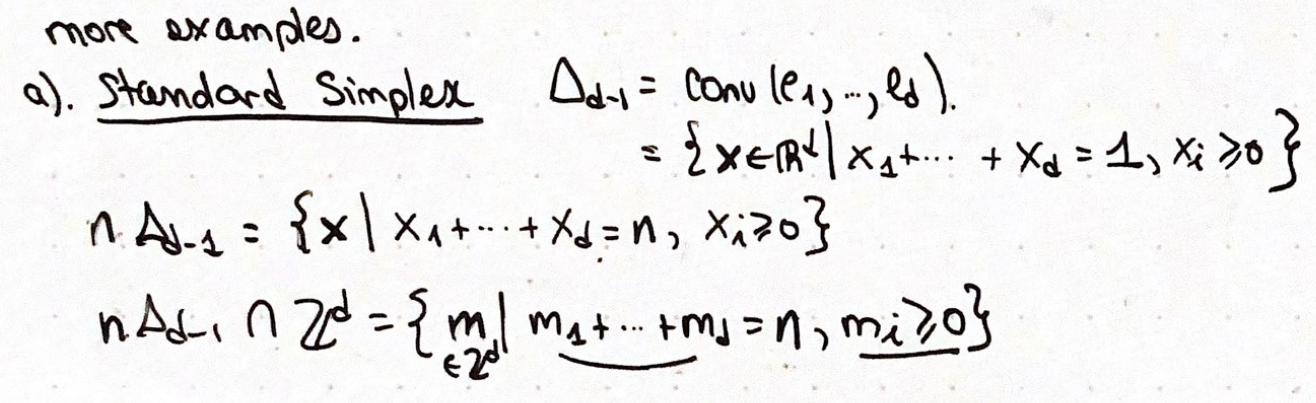 more examples.
a). Standard Simplex Δ_{d-1} = conv(e_1, ..., e_d).
= {x ∈ ℝ^d | x_1 + ... + x_d = 1, x_i ≥ 0}
n Δ_{d-1} = {x | x_1 + ... + x_d = n, x_i ≥ 0}
n Δ_{d-1} ∩ ℤ^d = {m ∈ ℤ^d | m_1 + ... + m_d = n, m_i ≥ 0}